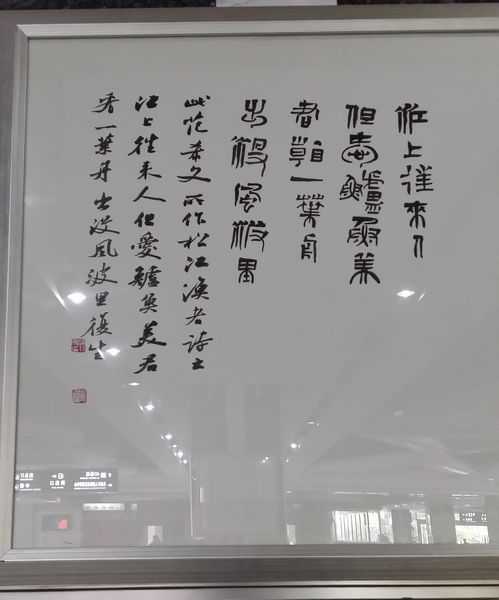 江上往來人
但愛鱸魚美
君看一葉舟
出沒風波里
此范希文所作松江漁者詩云
江上往来人但愛鱸魚美君
看一葉舟出没風波里復